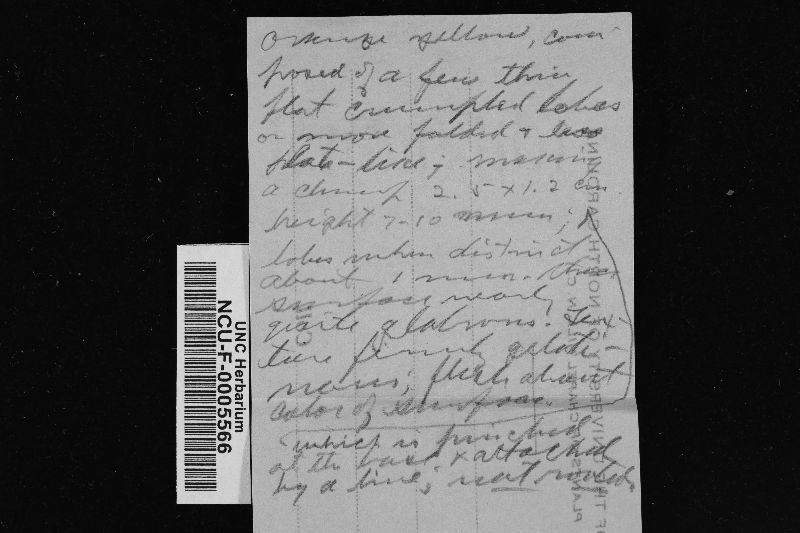 orange yellow, com
posed of a few thin
flat crumpled lobes
or more folded & less
plate-like; making
a clump 2.5 x 1.2 cm
height 7-10 mm;
lobes when distinct
about 1 mm. thick
surface nearly
quite glabrous. Tex-
ture firmly gelati-
nous; flesh about
color of surface.
which is pinched
at the base & attached
by a line; not rooted.
UNC Herbarium
NCU-F-0005566